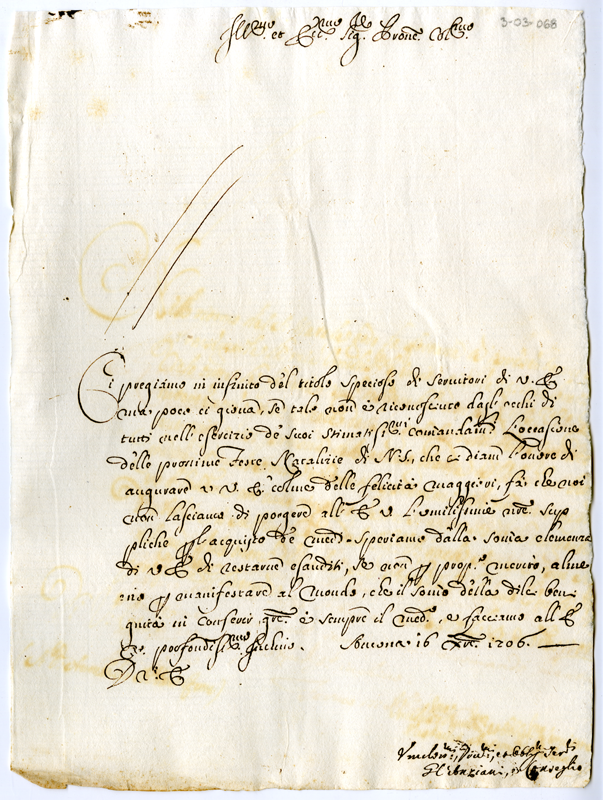 3-03-068
Ill.mo et Ecc.mo Sig. Prone Col.mo
Ci pregiamo in infinito del titolo specioso di servitori di V. E.
ma poco ci giova, se tale non è riconosciuto dagl'occhi di
tutti nell'esercizio de suoi stimatis.mi comandam.ti L'occasione
delle prossime Feste Natalizie di N.S., che ci dian l'onore di
augurare a V. E. colme delle felicità maggiori, fa che noi
non lasciamo di porgere all' E. V. l'umilissime nre sup
pliche p l'acquisto de med. speriamo dalla somma clemenza
di V. E. di restarne esauditi, se non p prop.o merito, alme
no p manifestare al Mondo, che il sonio della di lei beni
gnità in conferir gre è sempre il med.o, e facciamo all' E.
V. profondiss.mo inchino. Ancona 16 Xbre 1706.
D. V. E.
Umiliss.mi Dev.mi, et Obb.mi Ser.ri
Gl'Anziani, e Conseglio